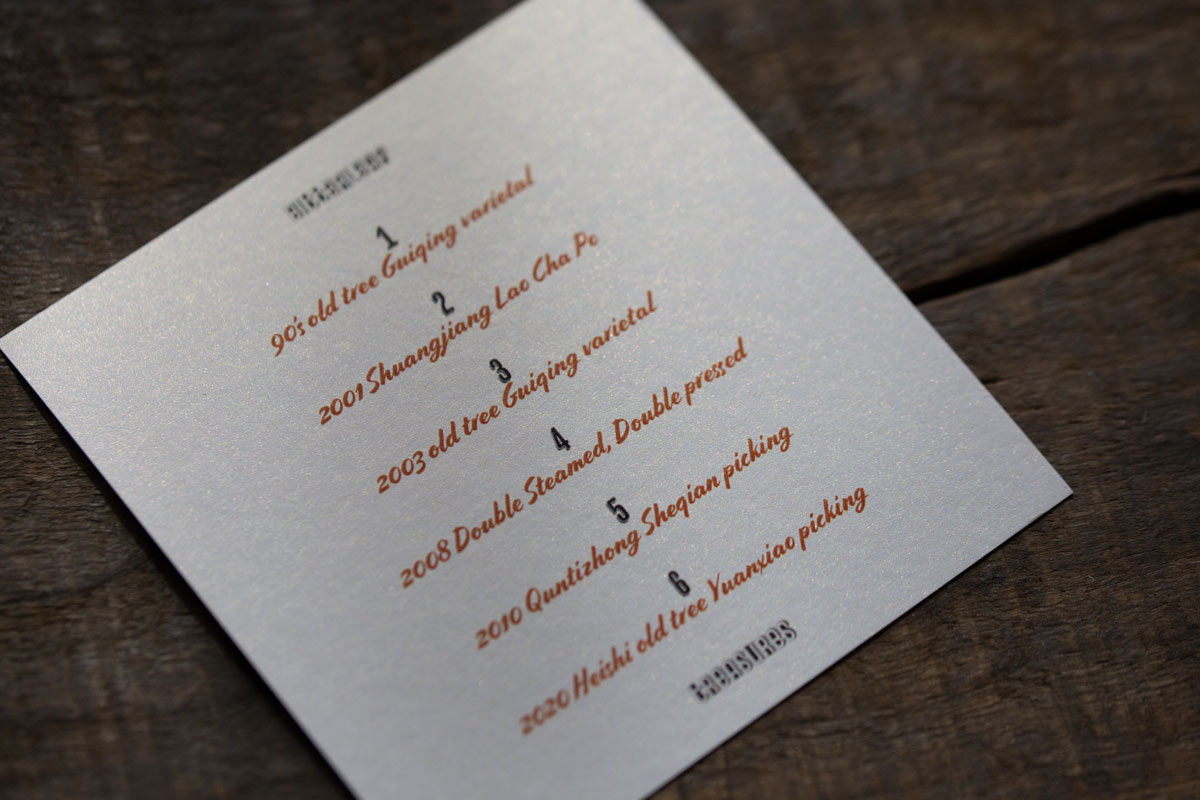 1
90's old tree Guiqing varietal
2
2001 Shuangjiang Lao Cha Po
3
2003 old tree Guiqing varietal
4
2008 Double Steamed, Double pressed
5
2010 Quntizhong Sheqian picking
6
2020 Heishi old tree Yuanxiao picking
TREASURES